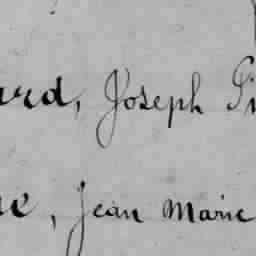 ard, Joseph
, Jean Marie